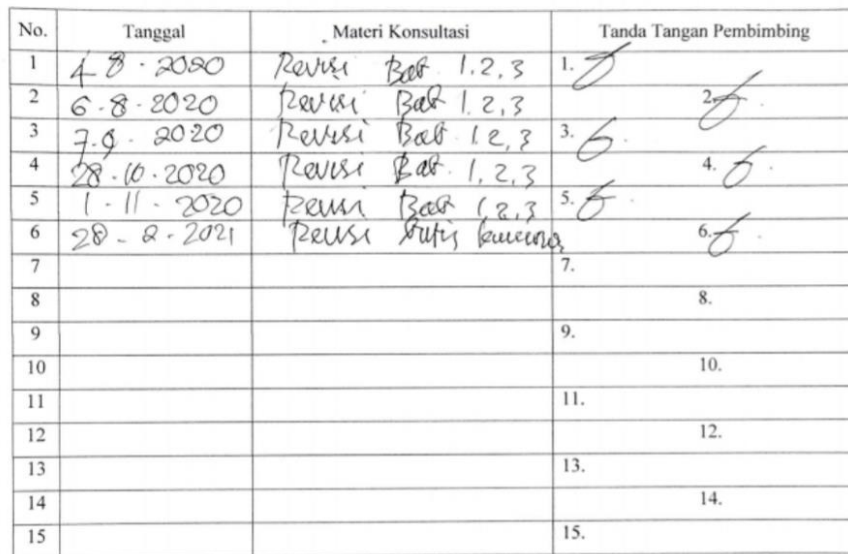 No. Tanggal Materi Konsultasi Tanda Tangan Pembimbing
1 4 8 · 2020 Revisi Bab 1.2,3 1.
2 6 · 8 · 2020 Revisi Bab 1.2,3 2.
3 7.9 · 2020 Revisi Bab 1.2,3 3.
4 28 · 10 · 2020 Revisi Bab 1.2,3 4.
5 1 - 11 - 2020 Revisi Bab 1.2,3 5.
6 28 - 2 - 2021 Revisi 6.
7 7.
8 8.
9 9.
10 10.
11 11.
12 12.
13 13.
14 14.
15 15.